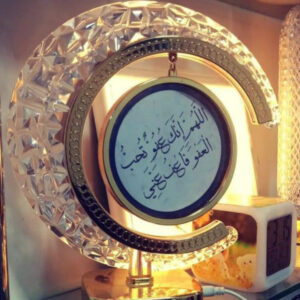 اللهم إنك عفو تحب
العفو فاعف عني